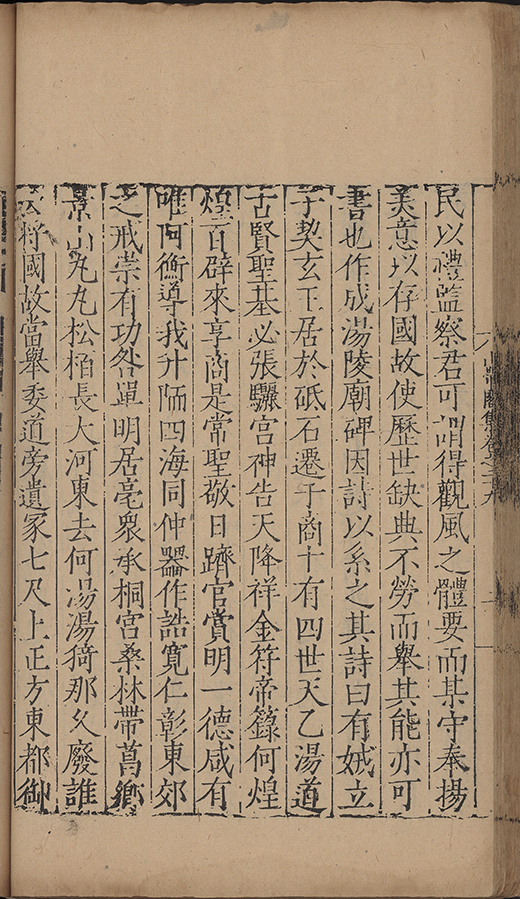 民以禮監察君可謂得觀風之體要而某守奉揚
美意以存國故使歷世缺典不勞而舉其能亦可
書也作成湯陵廟碑因詩以系之其詩曰有娀立
子契玄王居於砥石遷于商十有四世天乙湯道
古賢聖基必張驪宮神告天降祥金符帝籙何煌
煌百辟來享商是常聖敬日躋官賞明一德咸有
唯阿衡導我升陑四海同仲虺作誥寬仁彰東郊
之戒崇有功咎單明居亳眾承桐宮桑林帶葛鄉
景山丸丸松栢長大河東去何湯湯猗那久廢誰
將國故當舉委道旁遺冢七尺上正方東都御